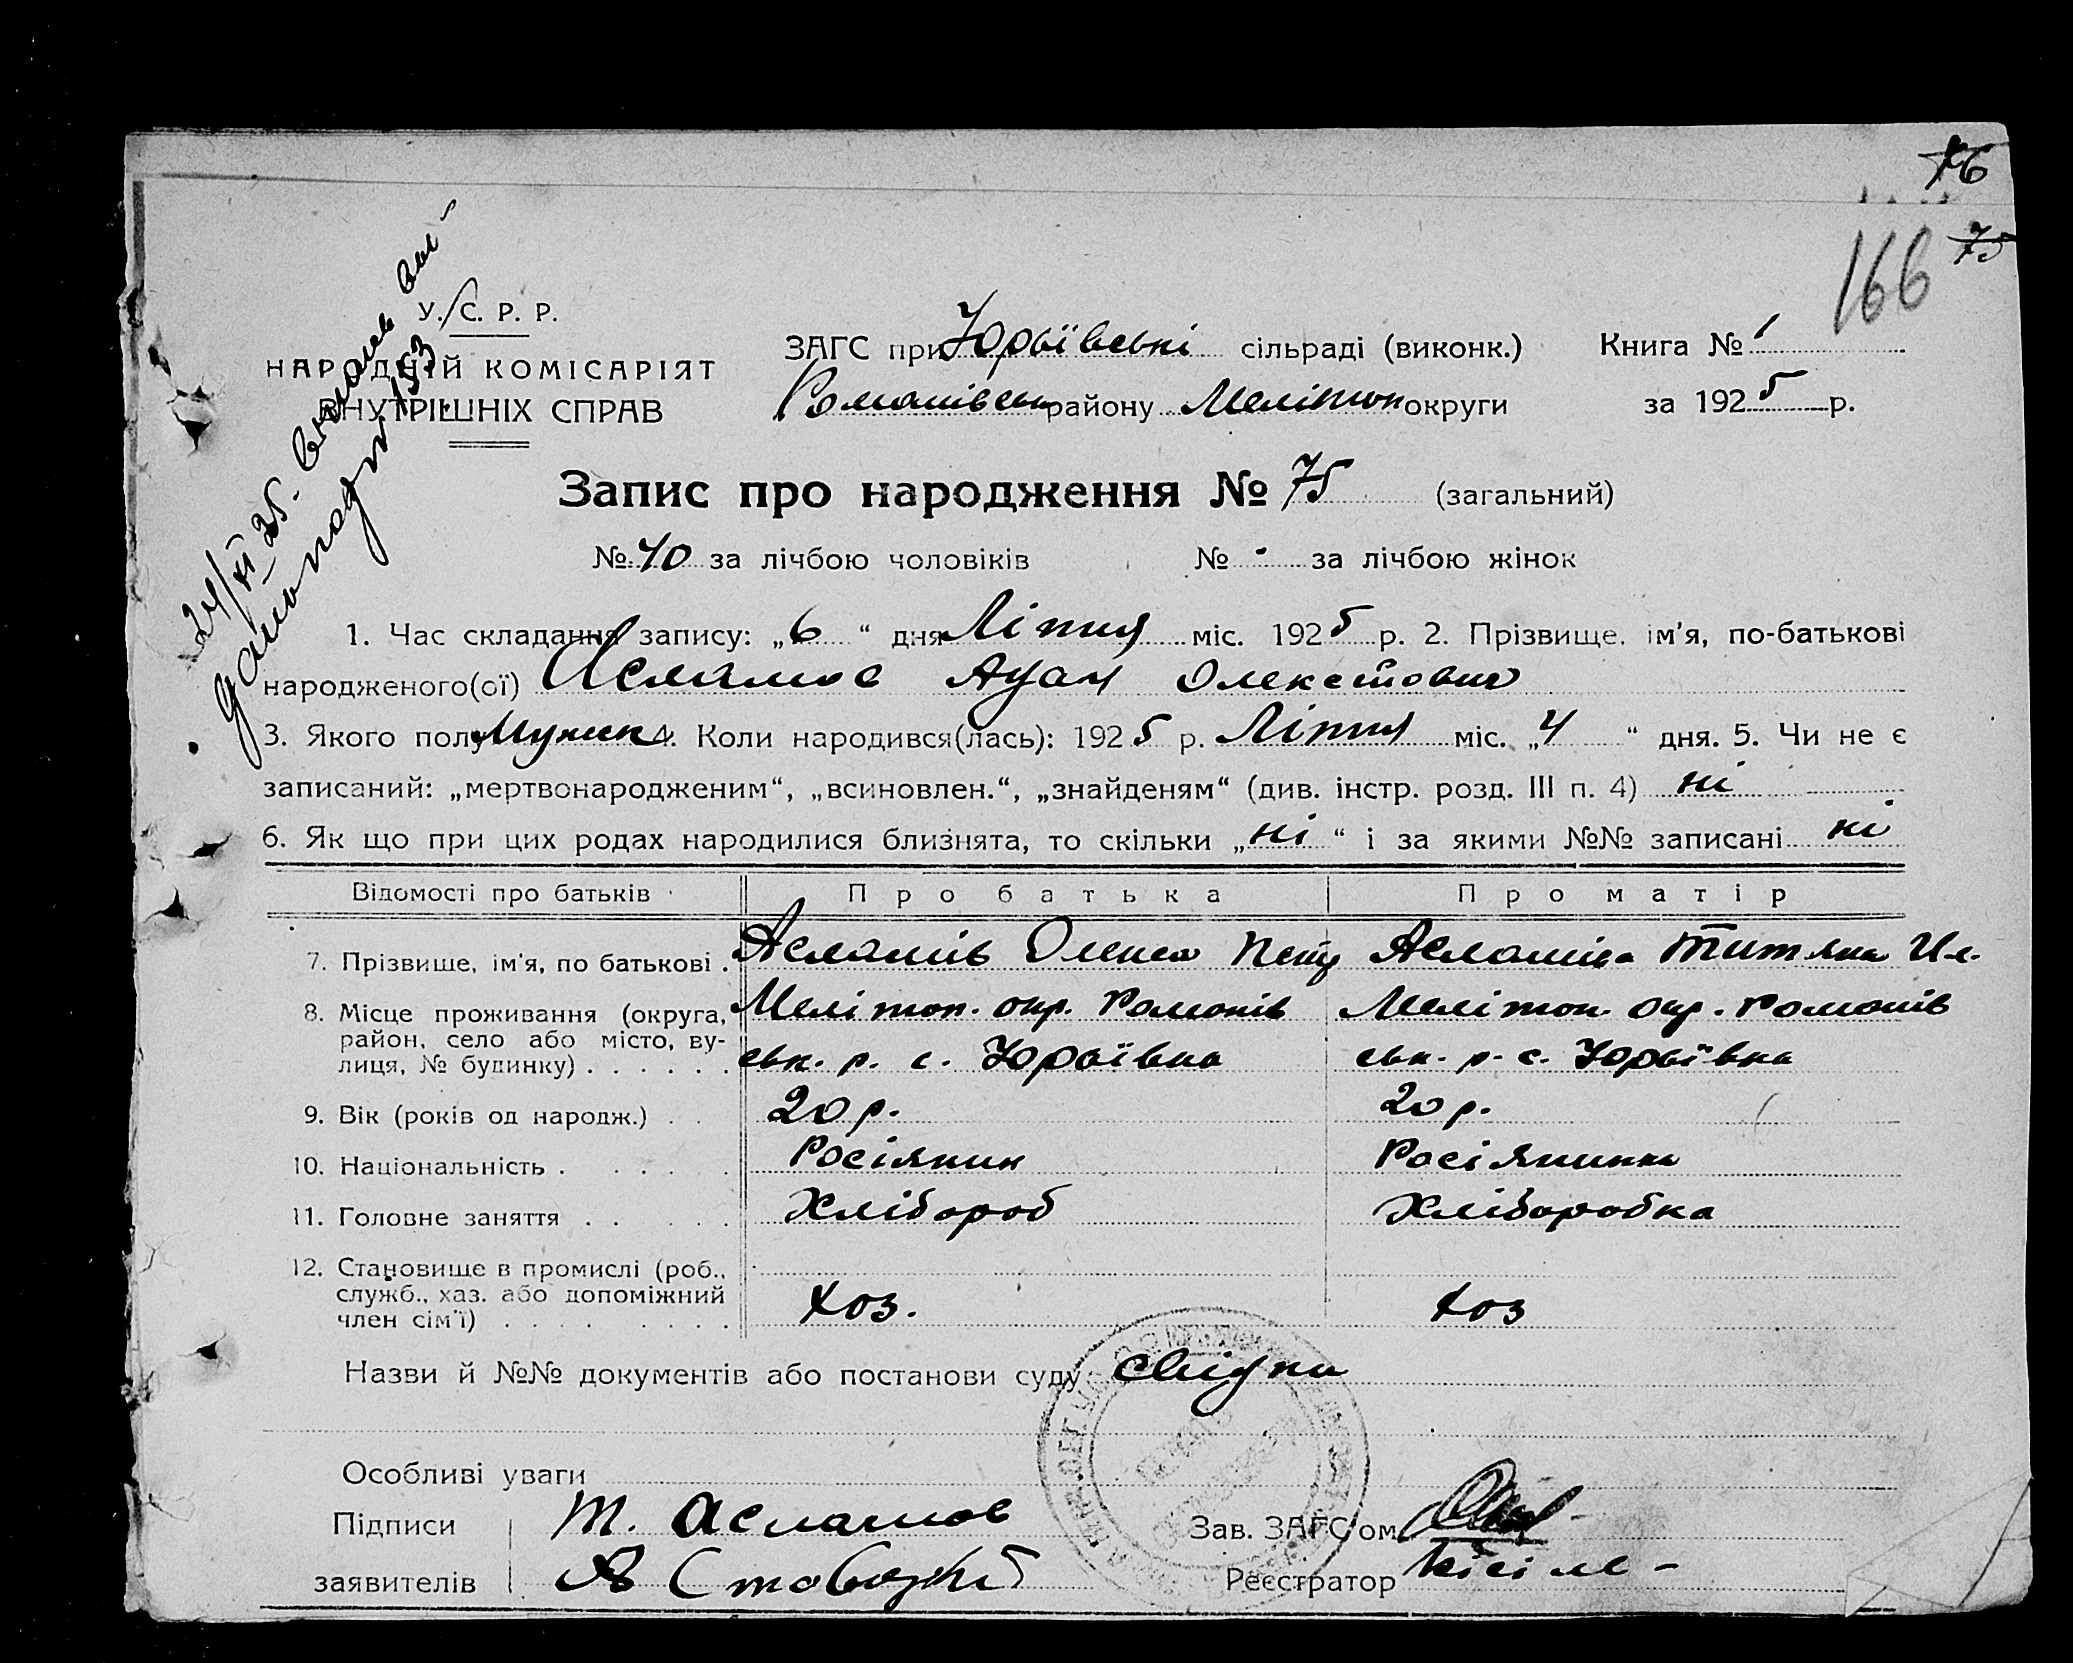 76
166 75
У. С. Р. Р.
НАРОДНІЙ КОМІСАРІЯТ
ВНУТРІШНІХ СПРАВ
ЗАГС при Юрьївські сільраді (виконк.) Книга № 1
Романівськ району Мелітоп округи за 1925 р.
Запис про народження № 75 (загальний)
№ 40 за лічбою чоловіків № - за лічбою жінок
1. Час складання запису: „6“ дня Ліпня міс. 1925 р. 2. Прізвище, ім’я, по-батькові
народженого(ої) Асламов Адам
3. Якого полу Мужик 4. Коли народився(лась): 1925 р. Ліпня міс. „4“ дня. 5. Чи не є
записаний: „мертвонародженим“, „всиновлен.“, „знайденям“ (див. інстр. розд. III п. 4) ні
6. Як що при цих родах народилися близнята, то скільки „ні“ і за якими №№ записані ні
Відомості про батьків Про батька Про матір
7. Прізвище, ім’я, по батькові . Асламів Олекса Петр Асламіва Титяна
8. Місце проживання (округа, Мелітоп. окр. Романів Мелітоп. окр. Романів
район, село або місто, ву- ськ. р. с. Юрьївка ськ. р. с. Юрьївка
лиця, № будинку) . . . . . .
9. Вік (років од народж.) . . 20 р. 20 р.
10. Національність . . . . . Росіянин Росіянинка
11. Головне заняття . . . . . Хлібороб Хліборобка
12. Становище в промислі (роб.,
служб., хаз. або допоміжний хоз. хоз
член сім’ї) . . . . . . . .
Назви й №№ документів або постанови суду свідки
Особливі уваги
Підписи Т. Асламов Зав. ЗАГС’ом
заявителів Реєстратор
24/XI 25.